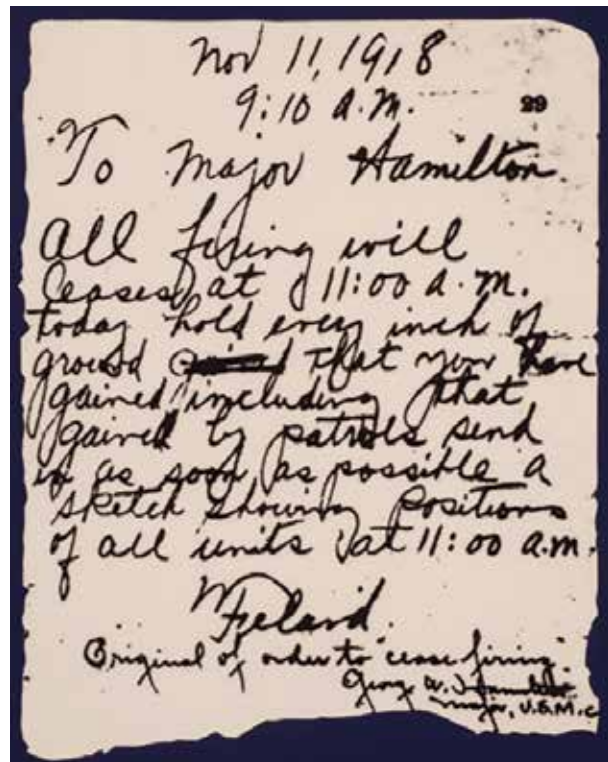 Nov 11, 1918
9:10 a.m.
29
To Major Hamilton.
All firing will
ceases at 11:00 a.m.
today hold every inch of
ground that you have
gained including that
gained by patrols send
in as soon as possible a
sketch showing positions
of all units at 11:00 a.m.
Feland.
Original of order to "cease firing"
George W. Hamilton
Major, U.S.M.C.